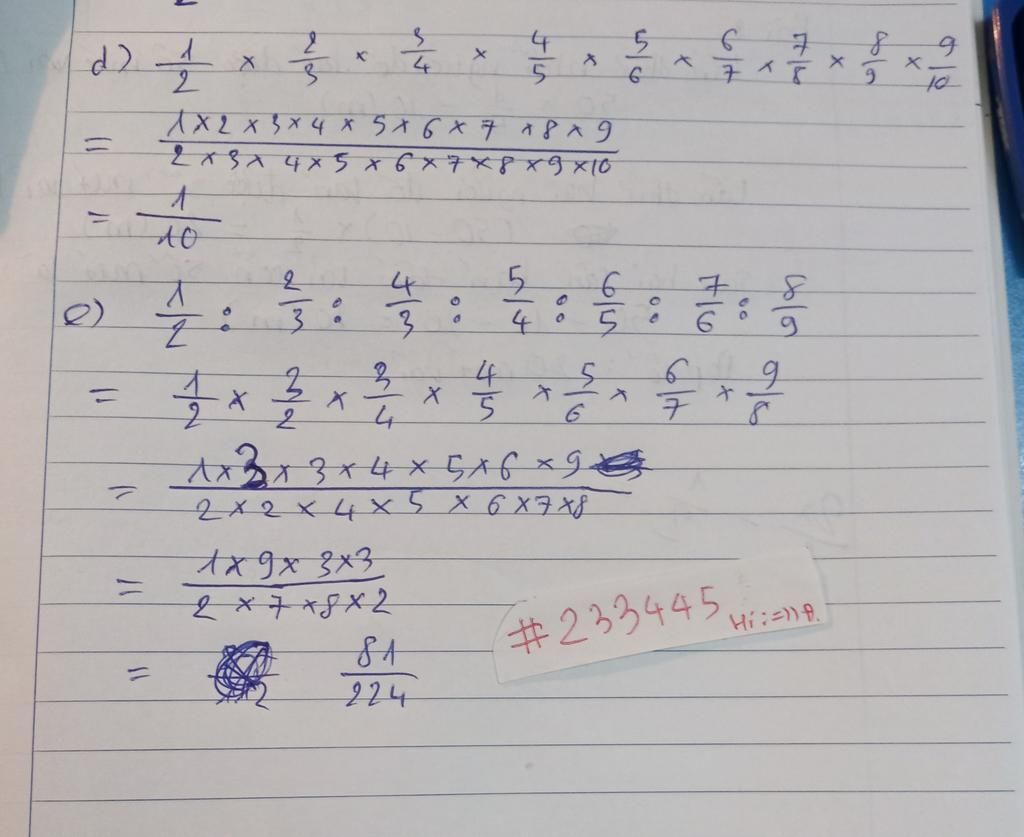 d) 1/2 × 2/3 × 3/4 × 4/5 × 5/6 × 6/7 × 7/8 × 8/9 × 9/10
= 1×2×3×4×5×6×7×8×9 / 2×3×4×5×6×7×8×9×10
= 1/10
e) 1/2 : 2/3 : 4/3 : 5/4 : 6/5 : 7/6 : 8/9
= 1/2 × 3/2 × 3/4 × 4/5 × 5/6 × 6/7 × 9/8
= 1×3×3×4×5×6×9 / 2×2×4×5×6×7×8
= 1×9×3×3 / 2×7×8×2
= 81/224
#233445